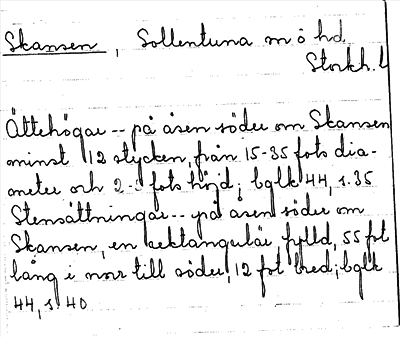 Skansen, Sollentuna sn o hd
Stockh. L
Ättehögar -- på åsen söder om Skansen
minst 12 stycken, från 15-35 fots dia-
meter och 2-5 fots höjd; bglk 44, s. 35
Stensättningar -- på åsen söder om
Skansen, en rektangulär, fylld, 55 fot
lång i norr till söder, 12 fot bred; bglk
44, s 40